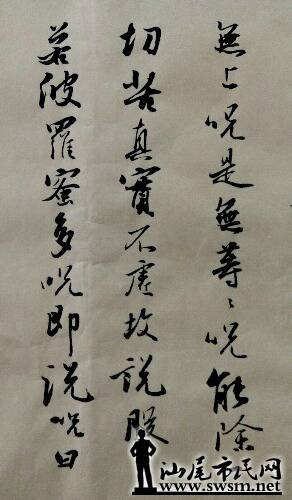 無上呪是無等々呪能除
切苦真實不虛故說般
若波羅蜜多呪即說呪曰
汕尾市民网
www.swsm.net